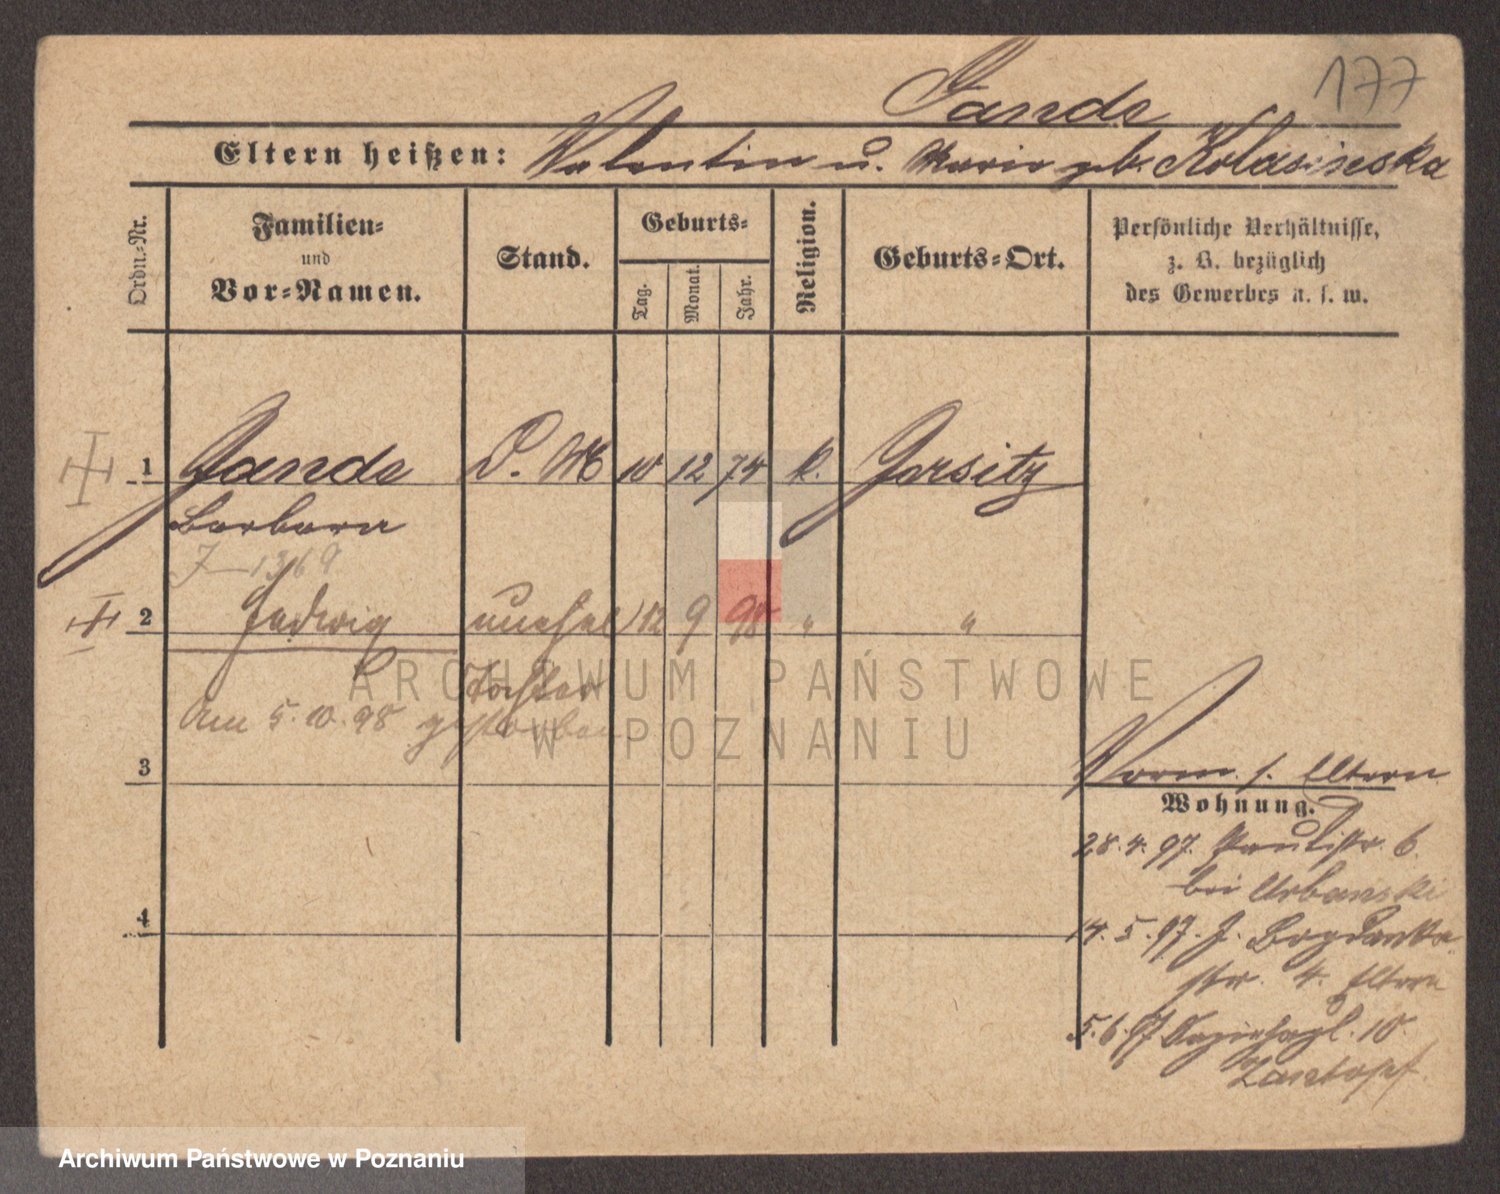 Jande
177
Eltern heißen: Valentin u. Marie geb. Kolasinska
Ordn.-Nr.
Familien-
und
Vor-Namen.
Stand.
Geburts-
Tag.
Monat.
Jahr.
Religion.
Geburts-Ort.
Persönliche Verhältnisse,
z. B. bezüglich
des Gewerbes u. s. w.
1 Jande D. M 10 12 74 k. Jersitz
Barbara
J 1369
2 Hedwig unehel 12 9 98 " "
Tochter
Am 5.10.98 gestorben
3
Vorm. s. Eltern
Wohnung.
28.4.97. Paulistr. 6.
bei Urbanski
14.5.97. J. Bogdanka
str. 4. Eltern
5.6.97 10
4
ARCHIWUM PAŃSTWOWE
W POZNANIU
Archiwum Państwowe w Poznaniu